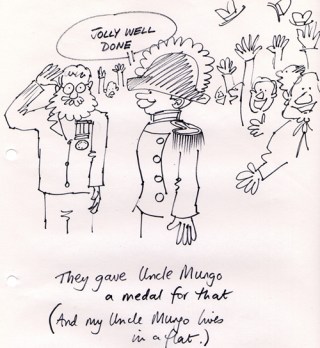 JOLLY WELL
DONE
They gave Uncle Mungo
a medal for that
(And my Uncle Mungo lives
in a flat.)